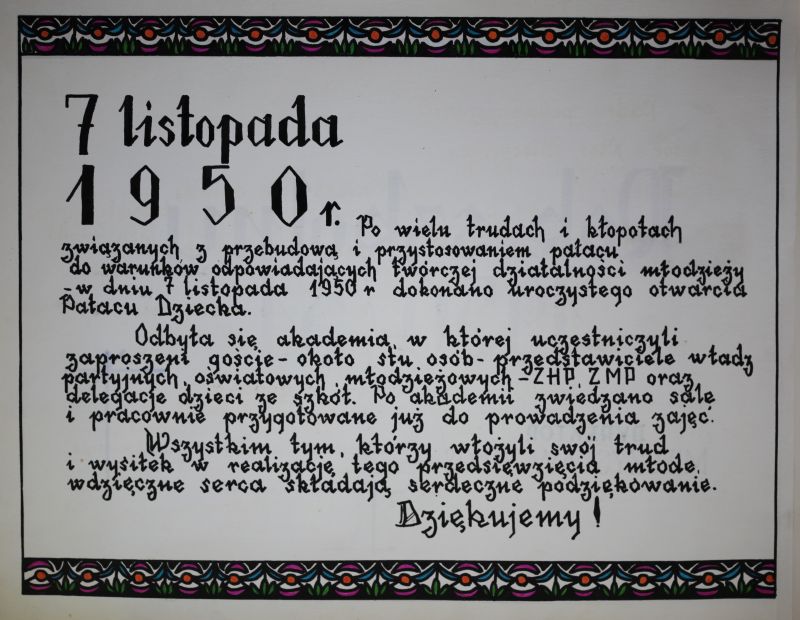 7 listopada
1950 r. Po wielu trudach i kłopotach
związanych z przebudową i przystosowaniem pałacu
do warunków odpowiadających twórczej działalności młodzieży
- w dniu 7 listopada 1950 r dokonano uroczystego otwarcia
Pałacu Dziecka.
Odbyła się akademia, w której uczestniczyli
zaproszeni goście - około stu osób - przedstawiciele władz
partyjnych, oświatowych, młodzieżowych - ZHP, ZMP oraz
delegacje dzieci ze szkół. Po akademii zwiedzano sale
i pracownie przygotowane już do prowadzenia zajęć.
Wszystkim tym, którzy włożyli swój trud
i wysiłek w realizację tego przedsięwzięcia młode,
wdzięczne serca składają serdeczne podziękowanie.
Dziękujemy!